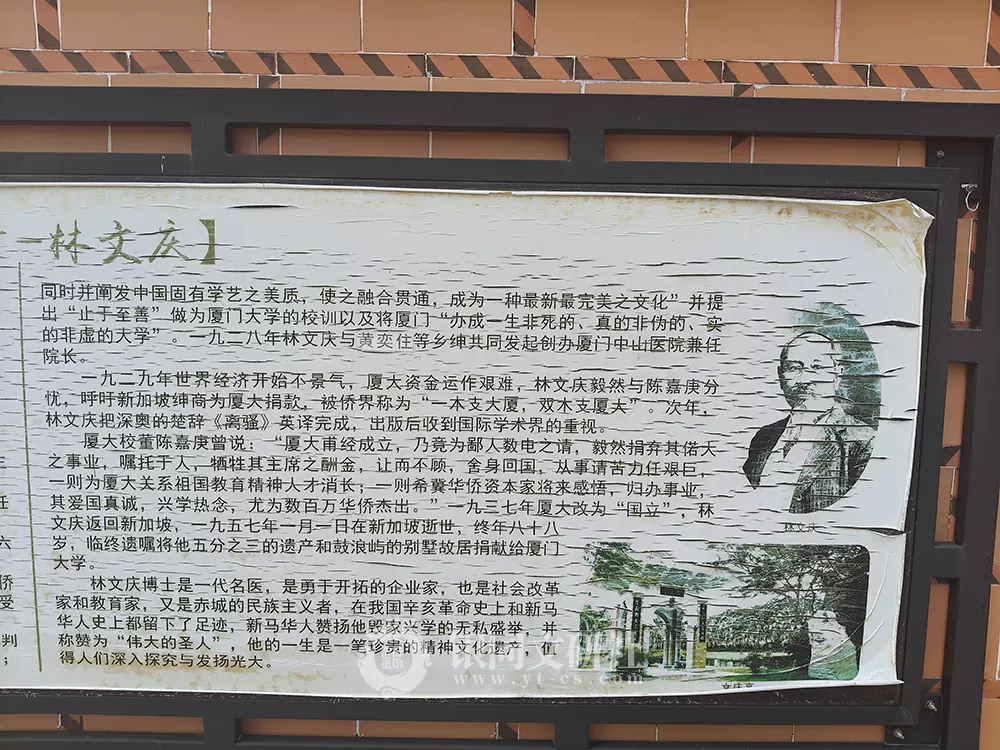 一林文庆】
同时并阐发中国固有学艺之美质，使之融合贯通，成为一种最新最完美之文化”并提
出“止于至善”做为厦门大学的校训以及将厦门“办成一生非死的、真的非伪的、实
的非虚的大学”。一九二八年林文庆与黄奕住等乡绅共同发起创办厦门中山医院兼任
院长。
一九二九年世界经济开始不景气，厦大资金运作艰难，林文庆毅然与陈嘉庚分
忧，呼吁新加坡绅商为厦大捐款，被侨界称为“一本支大厦，双木支厦大”。次年，
林文庆把深奥的楚辞《离骚》英译完成，出版后收到国际学术界的重视。
厦大校董陈嘉庚曾说：“厦大甫经成立，乃竟为鄙人数电之请，毅然捐弃其偌大
之事业，嘱托于人，牺牲其主席之酬金，让而不顾，舍身回国，从事请苦力任艰巨，
一则为厦大关系祖国教育精神人才消长；一则希冀华侨资本家将来感悟，归办事业，
其爱国真诚，兴学热念，尤为数百万华侨杰出。”一九三七年厦大改为“国立”，林
文庆返回新加坡，一九五七年一月一日在新加坡逝世，终年八十八
岁，临终遗嘱将他五分之三的遗产和鼓浪屿的别墅故居捐献给厦门
大学。
林文庆博士是一代名医，是勇于开拓的企业家，也是社会改革
家和教育家，又是赤城的民族主义者，在我国辛亥革命史上和新马
华人史上都留下了足迹，新马华人赞扬他毁家兴学的无私盛举，并
称赞为“伟大的圣人”，他的一生是一笔珍贵的精神文化遗产，值
得人们深入探究与发扬光大。
任
六
侨
受
判
；
林文庆
文庆亭
www.yt-cs.com